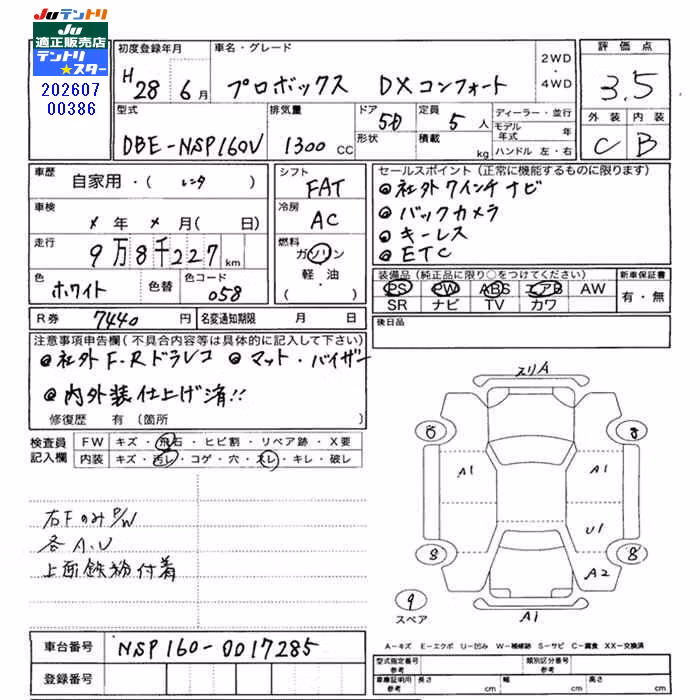 JUテントリ
JU
適正販売店
テントリ
スター
202607
00386
初度登録年月
H 28 6月
車名・グレード
プロボックス DXコンフォート
2WD
・
4WD
評価点
3.5
外装 内装
C B
型式
DBE-NSP160V
排気量
1300 CC
ドア 5D
形状
定員 5人
積載 kg
ディーラー・並行
モデル年式 年
ハンドル 左・右
車歴
自家用・(レンタ)
車検
×年×月(日)
走行
9万8千227km
色
ホワイト
色替
色コード
058
シフト
FAT
冷房
AC
燃料
ガソリン
軽・油
( )
R券 7440円
名変通知期限 月 日
セールスポイント(正常に機能するものに限ります)
社外7インチナビ
バックカメラ
キーレス
ETC
装備品(純正品に限り○をつけてください)
PS PW ABS エアB AW
SR ナビ TV カワ
新車保証書
有・無
後日品
注意事項申告欄(不具合内容等は具体的に記入して下さい)
社外F.Rドラレコ マット・バイザー
内外装仕上げ済!!
修復歴 有(箇所 )
検査員
記入欄
FW キズ・飛石・ヒビ割・リペア跡・X要
内装 キズ・汚レ・コゲ・穴・スレ・キレ・破レ
右FのみP/W
各A.U
上面鉄粉付着
スリA
8 8
A1 A1
U1
8 8
A2
9
スペア
A1
A-キズ E-エクボ U-凹み W-補修跡 S-サビ C-腐食 XX-交換済
車台番号 NSP160-0017285
登録番号
型式指定番号
参考
類別区分番号
参考
車庫証明用
参考
長さ cm 幅 cm 高さ cm